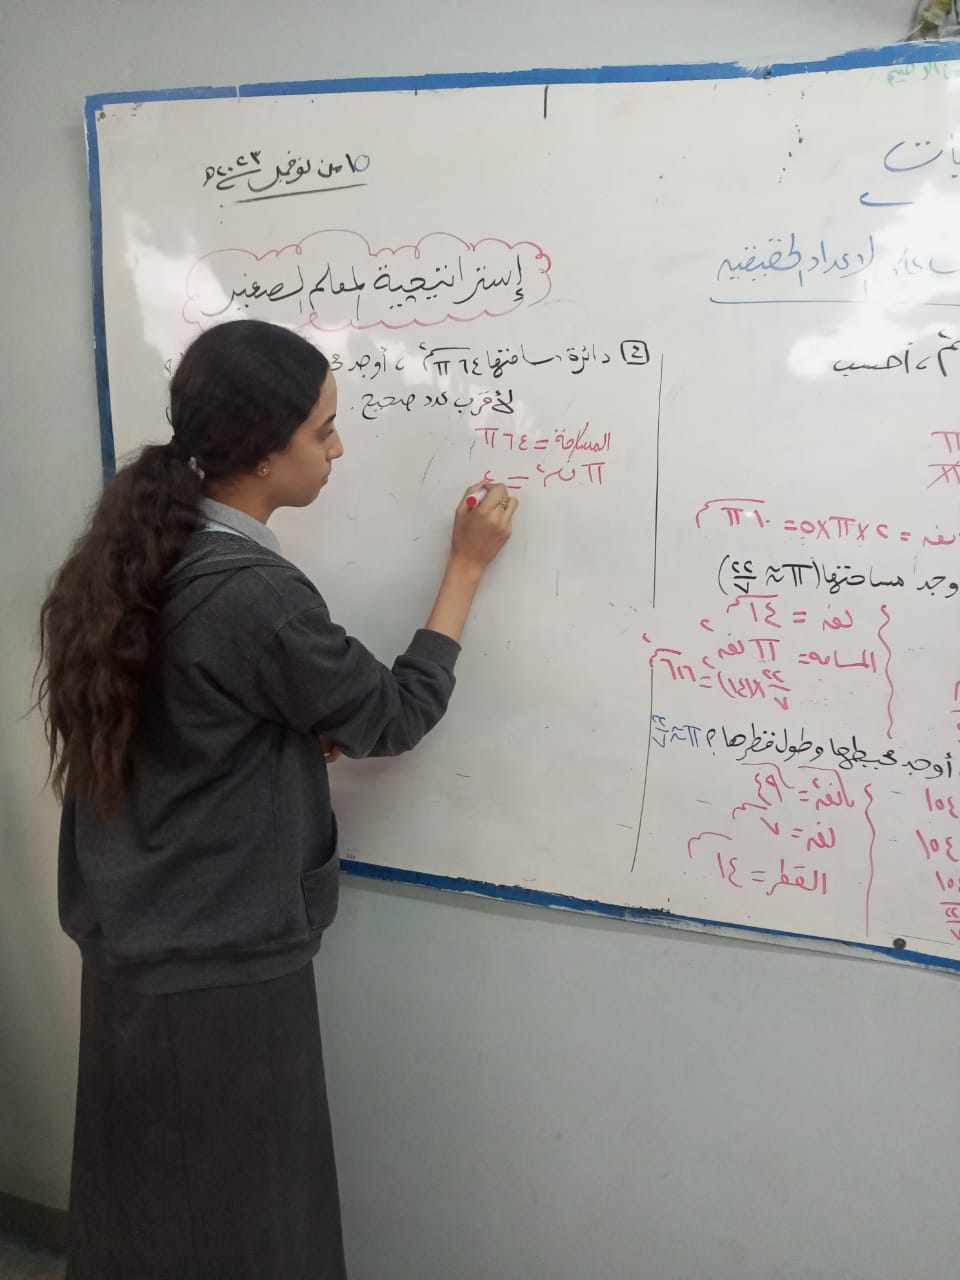 ١٥ من نوفمبر ٢٠٢٣م
إستراتيجية المعلم الصغير
٤ دائرة مساحتها ٦٤ π سم٢ ، أوجد
لأقرب عدد صحيح .
المساحة = ٦٤ π
π نق٢ = ٤
الأعداد الحقيقية
، أحسب
نق = ٢ × π × ٥ = ١٠ π سم
أوجد مساحتها (π ≈ ٢٢/٧)
نق = ١٤ سم
المساحة = π نق٢
٢٢/٧ × (١٤)٢ = ٦١٦ سم٢
، أوجد محيطها وطول قطرها ؟ π ≈ ٢٢/٧
نق٢ = ٤٩
نق = ٧ سم
القطر = ١٤ سم
١٥٤
١٥٤
١٥٤
٢٢/٧